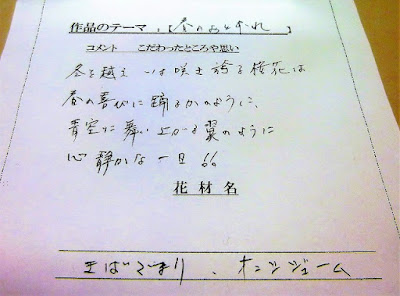 作品のテーマ 、「春のおとずれ」
コメント こだわったところや思い
冬を越え 咲き誇る桜花は
春の喜びに踊るかのように、
青空に舞い上がる翼のように
心静かな一日
花材名
、オンシジューム